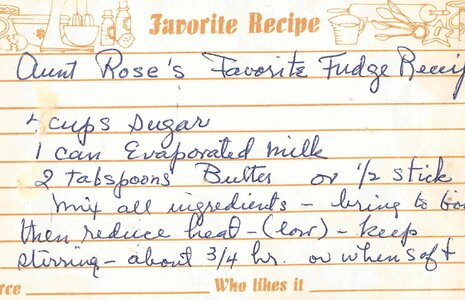 Favorite Recipe
Aunt Rose's Favorite Fudge Receip
cups Sugar
1 can Evaporated Milk
2 Tabspoons Butter or 1/2 stick
mix all ingredients - bring to
then reduce heat - (low) - keep
stirring - about 3/4 hr. or when soft
rce Who likes it